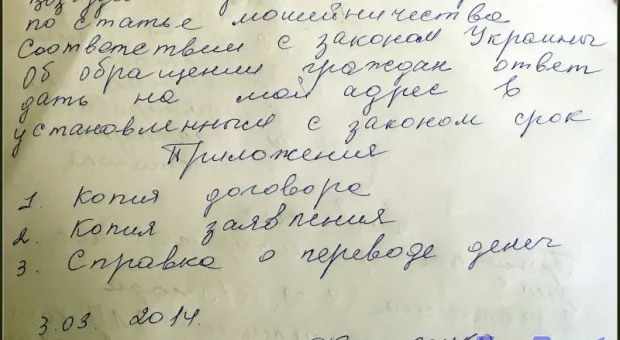 по статье мошейничества
Соответствии с законом Украины
Об обращении граждан ответ
дать на мой адрес в
установленным с законом срок
Приложения
1. Копия договора
2. Копия заявления
3. Справка о переводе денег
3.03. 2014.